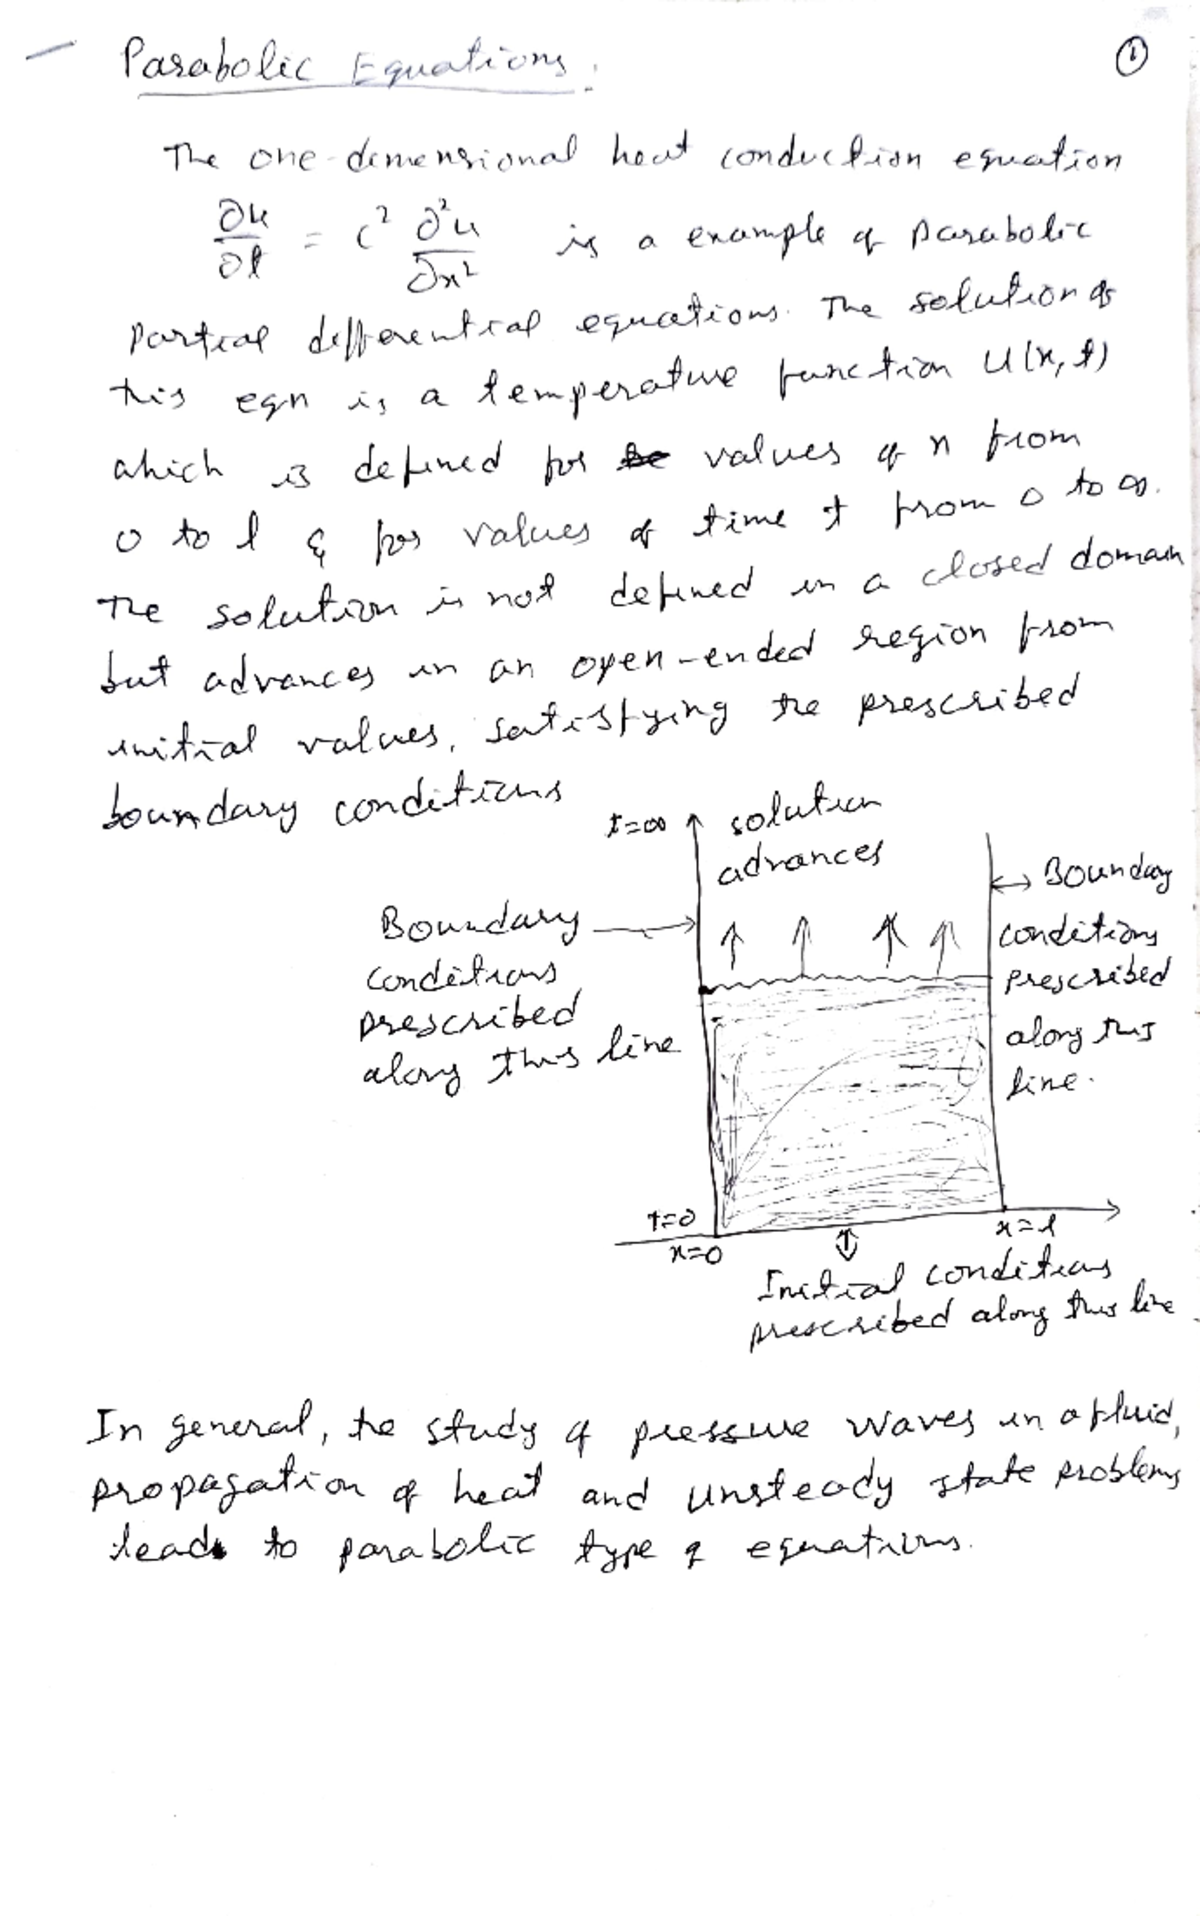 Parabolic Equations:
①
The one-dimensional heat conduction equation
∂u/∂t = c² ∂²u/∂x² is a example of parabolic
partial differential equations. The solution of
this eqn is a temperature function u(x, t)
which is defined for values of x from
0 to l & for values of time t from 0 to ∞.
The solution is not defined in a closed domain
but advances in an open-ended region from
initial values, satisfying the prescribed
boundary conditions
t=∞
solution
advances
Boundary
conditions
prescribed
along this line
Boundary
conditions
prescribed
along this
line.
t=0
x=0
x=l
Initial conditions
prescribed along this line
In general, the study of pressure waves in a fluid,
propagation of heat and unsteady state problems
lead to parabolic type of equations.